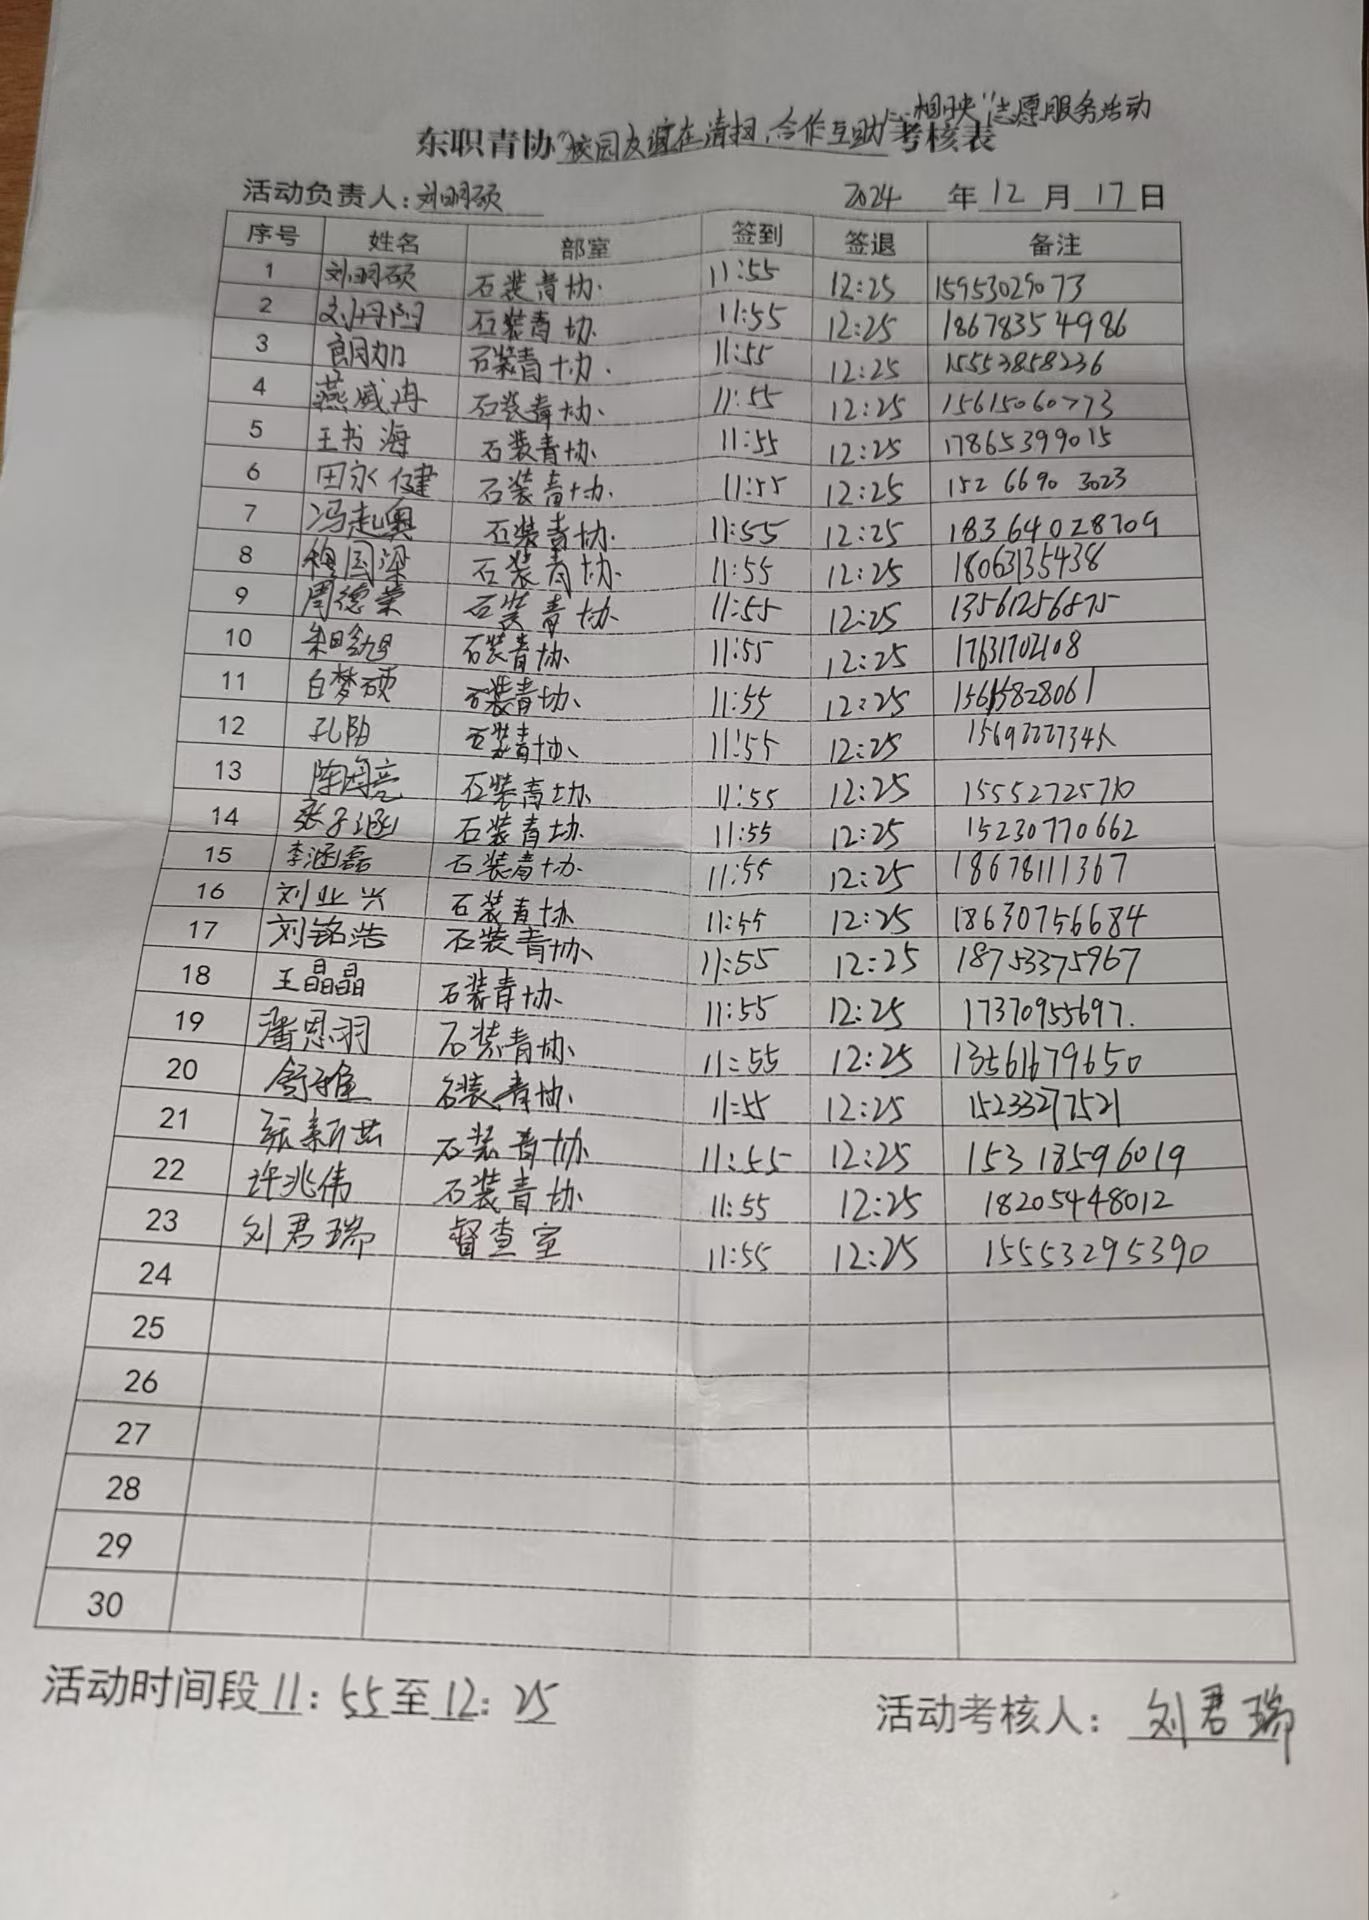 东职青协“校园友谊在清扫,合作互助心相映”志愿服务活动考核表
活动负责人:刘明硕 2024 年 12 月 17 日
序号 姓名 部室 签到 签退 备注
1 刘明硕 石装青协 11:55 12:25 15953029073
2 刘丹阳 石装青协 11:55 12:25 18678354986
3 石装青协 11:55 12:25 15553858236
4 燕威冉 石装青协 11:55 12:25 15615060773
5 王书海 石装青协 11:55 12:25 17865399015
6 田永健 石装青协 11:55 12:25 152 6690 3023
7 冯起奥 石装青协 11:55 12:25 18364028709
8 穆国梁 石装青协 11:55 12:25 18063135438
9 周德荣 石装青协 11:55 12:25 13561256875
10 石装青协 11:55 12:25 17631702108
11 白梦硕 石装青协 11:55 12:25 15615828061
12 孔阳 石装青协 11:55 12:25
13 陈国亮 石装青协 11:55 12:25 15552725710
14 张子涵 石装青协 11:55 12:25 15230770662
15 李涵磊 石装青协 11:55 12:25 18678111367
16 刘业兴 石装青协 11:55 12:25 18630756684
17 刘铭浩 石装青协 11:55 12:25 18753375967
18 王晶晶 石装青协 11:55 12:25 17370955697.
19 潘恩羽 石装青协 11:55 12:25 13561679650
20 舒雅 石装青协 11:55 12:25 15233277521
21 石装青协 11:55 12:25 15318596019
22 许兆伟 石装青协 11:55 12:25 18205448012
23 刘君瑞 督查室 11:55 12:25 15553295390
24
25
26
27
28
29
30
活动时间段 11:55至12:25 活动考核人:刘君瑞